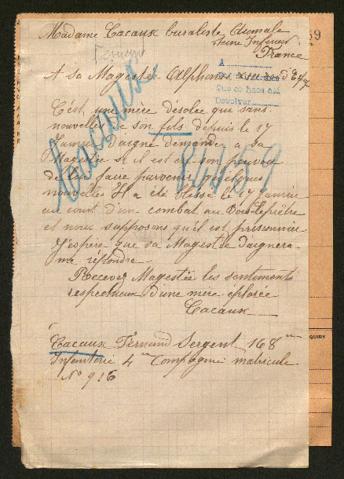 Madame Cacaux buraliste Aumale
Seine Inferieur
France
A Sa Magestée Alphonse
C'est une mère désolée qui sans
nouvelles de son fils depuis le 17
Janvier daigne demander a sa
Magestée s'il est en son pouvoir
de lui faire parvenir quelques
nouvelles Il a été blessé le 17 janvier
au cours d'un combat au Bois-le-prêtre
et nous supposons qu'il est prisonnier
J'espère que sa Magestée daignera
me répondre
Recevez Magestée les sentiments
respectueux d'une mère éplorée
Cacaux
Cacaux Fernand Sergent 168 me
Infanterie 4 me Compagnie matricule
N° 916